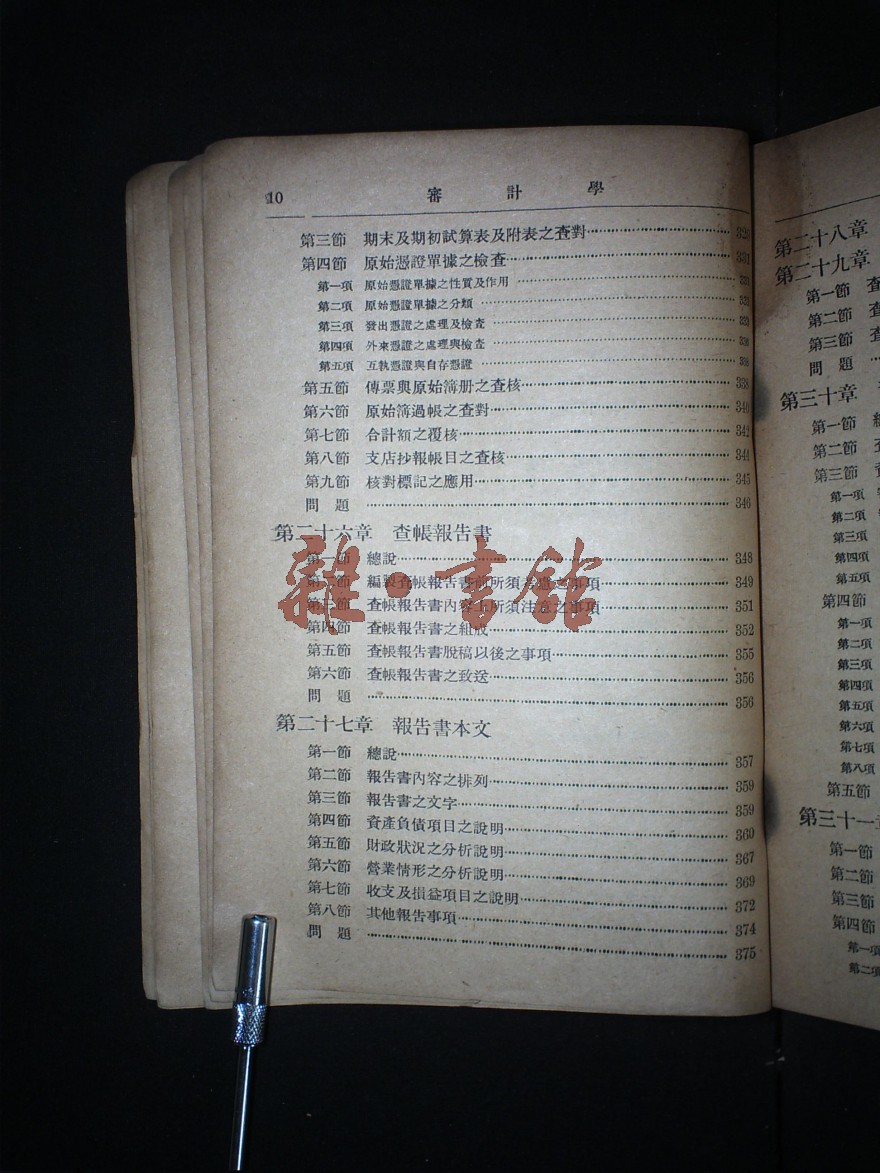 10 審計學
第三節 期末及期初試算表及附表之查對
第四節 原始憑證單據之檢查 331
第一項 原始憑證單據之性質及作用
第二項 原始憑證單據之分類
第三項 發出憑證之處理及檢查
第四項 外來憑證之處理與檢查
第五項 互執憑證與自存憑證
第五節 傳票與原始簿册之查核 338
第六節 原始簿過帳之查對 340
第七節 合計額之覆核 342
第八節 支店抄報帳目之查核 344
第九節 核對標記之應用 345
問題 346
第二十六章 查帳報告書
第一節 總說 348
第二節 編製查帳報告書前所須考慮之事項 349
第三節 查帳報告書內容上所須注意之事項 351
第四節 查帳報告書之組成 352
第五節 查帳報告書脫稿以後之事項 355
第六節 查帳報告書之致送 356
問題 356
第二十七章 報告書本文
第一節 總說 357
第二節 報告書內容之排列 359
第三節 報告書之文字 359
第四節 資產負債項目之說明 360
第五節 財政狀況之分析說明 367
第六節 營業情形之分析說明 369
第七節 收支及損益項目之說明 372
第八節 其他報告事項 374
問題 375
雜·書館
第二十八章
第二十九章
第一節 查
第二節 查
第三節 查
問題
第三十章
第一節
第二節 查
第三節 資
第一項
第二項
第三項
第四項
第五項
第四節
第一項
第二項
第三項
第四項
第五項
第六項
第七項
第八項
第五節
第三十一章
第一節
第二節
第三節
第四節
第一項
第二項